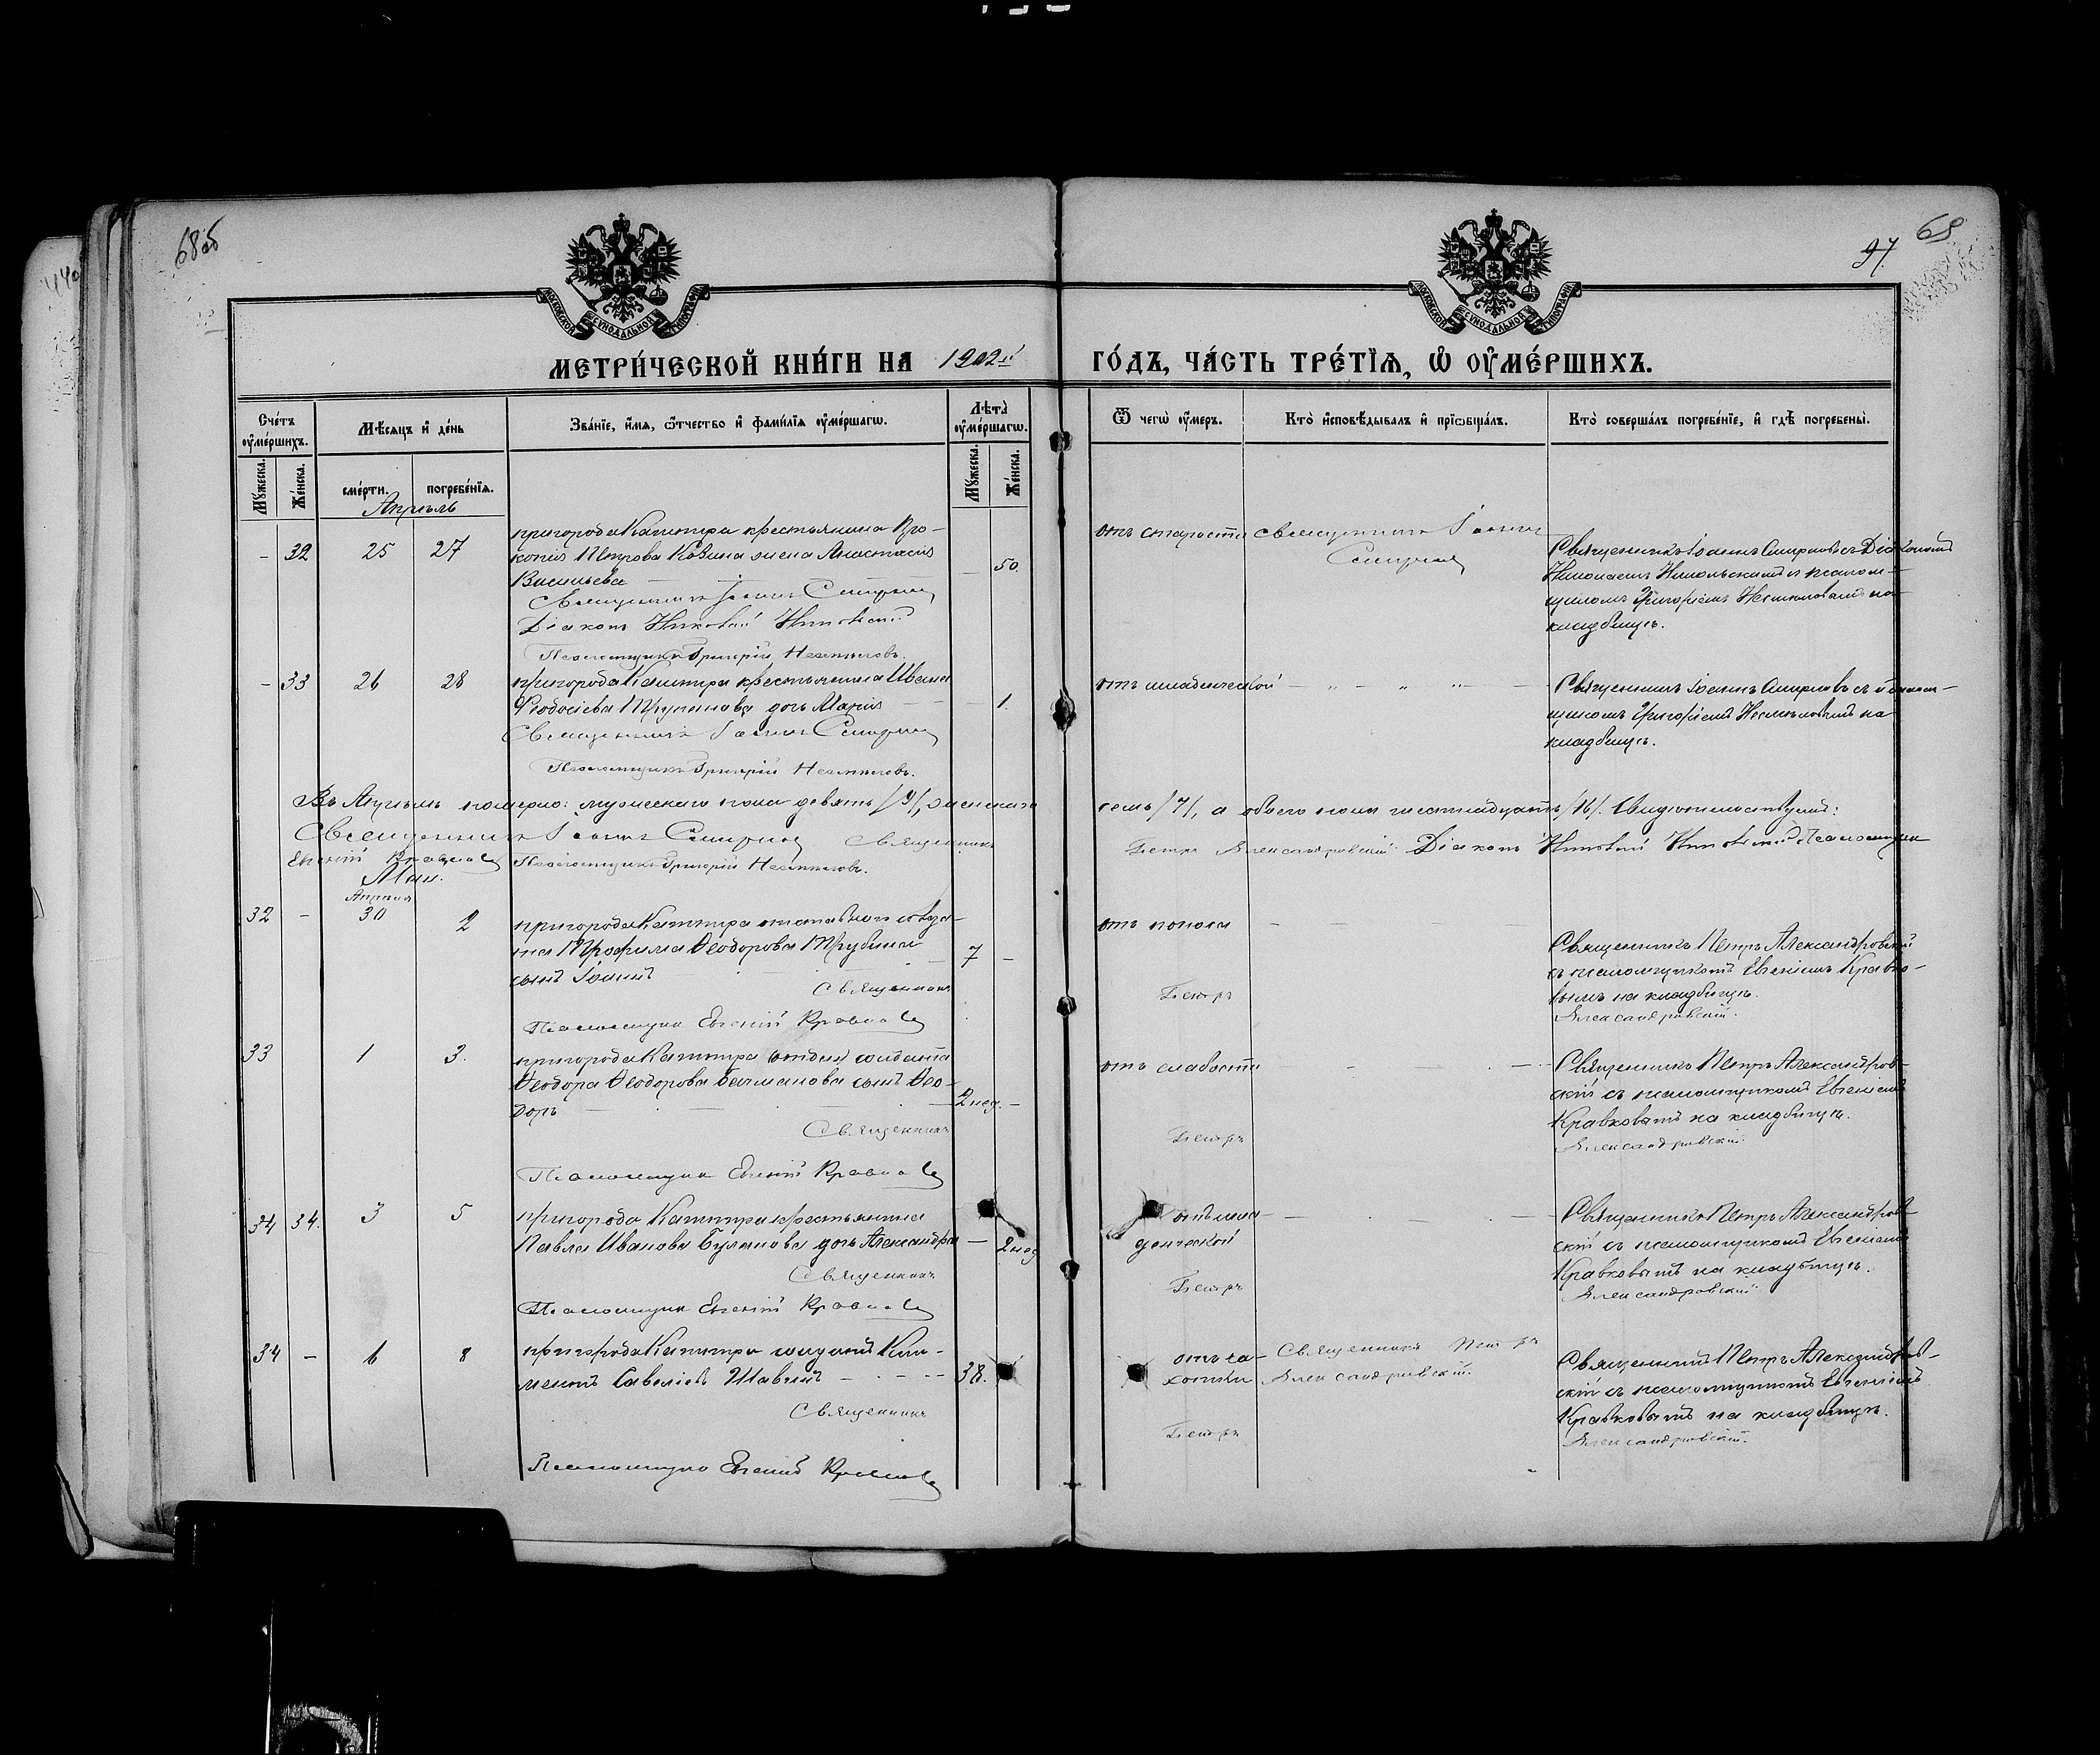 68об
97
69
МЕТРИ́ЧЕСКОЙ КНИ́ГИ НА 1902й ГО́ДЪ, ЧА́СТЬ ТРЕ́ТІЯ, Ѡ ОУ҆МЕ́РШИХЪ.
Сче́тъ оу҆ме́ршихъ.
Мѣ́сяцъ и҆ де́нь
Зва́нїе, и҆́мя, ѻ҆́тчество и҆ фами́лїя оу҆ме́ршагѡ.
Лѣ́та оу҆ме́ршагѡ.
Ѿ чегѡ̀ оу҆́меръ.
Кто̀ и҆сповѣ́дывалъ и҆ прїѡбща́лъ.
Кто̀ соверша́лъ погребе́нїе, и҆ гдѣ̀ погребены̀.
Му́жеска. Же́нска.
сме́рти. погребе́нїя.
Му́жеска. Же́нска.
Апрѣль
- 32 25 27
пригорода Каттира крестьянина Про-
копія Петрова жена Анастасія
Васильева
- 50.
Священникъ Іоаннъ Смирновъ
Діаконъ Николай Никольскій
Псаломщикъ Григорій
отъ старости
священникъ Іоаннъ
Смирновъ
Священникъ Іоаннъ Смирновъ съ Діакономъ
Николаемъ Никольскимъ и псалом-
щикомъ Григоріемъ на
кладбищѣ.
- 33 26 28
пригорода крестьянина Ивана
Ѳеодосіева дочь Марія
1.
Священникъ Іоаннъ Смирновъ
Псаломщикъ Григорій
отъ младенческой
Священникъ Іоаннъ Смирновъ съ псалом-
щикомъ Григоріемъ на
кладбищѣ.
Въ Апрѣлѣ померло: мужескаго пола девять /9/, женскаго
семь /7/, а обоего пола шестнадцать /16/. Свидѣтельствуемъ:
Священникъ Іоаннъ Смирновъ Священникъ
Петръ Александровскій. Діаконъ Николай Никольскій Псаломщикъ
Евгеній Кравковъ Псаломщикъ Григорій
Май.
Апрѣля
32 - 30 2
пригорода отставного солда-
та Трофима Ѳеодорова Трубина
сынъ Іоаннъ
7 -
Священникъ
Петръ
Александровскій.
Псаломщикъ Евгеній Кравковъ
отъ поноса
Священникъ Петръ Александровскій
съ псаломщикомъ Евгеніемъ Кравко-
вымъ на кладбищѣ.
33 1 3.
пригорода солдата
Ѳеодора Ѳеодорова сынъ Ѳео-
доръ
2 нед. -
Священникъ
Петръ
Александровскій.
Псаломщикъ Евгеній Кравковъ
отъ слабости
Священникъ Петръ Александров-
скій съ псаломщикомъ Евгеніемъ
Кравковымъ на кладбищѣ.
34 34. 3 5
пригорода крестьянина
Павла Иванова Буланова дочь Александра
- 2 нед
Священникъ
Петръ
Александровскій
Псаломщикъ Евгеній Кравковъ
отъ мла-
денческой
Священникъ Петръ Александров-
скій съ псаломщикомъ Евгеніемъ
Кравковымъ на кладбищѣ.
34 - 6 8
пригорода Кли-
ментъ Савеліевъ
38.
Священникъ
Петръ
Александровскій.
Псаломщикъ Евгеній Кравковъ
отъ ча-
хотки
Священникъ Петръ
Александровскій.
Священникъ Петръ Александров-
скій съ псаломщикомъ Евгеніемъ
Кравковымъ на кладбищѣ.